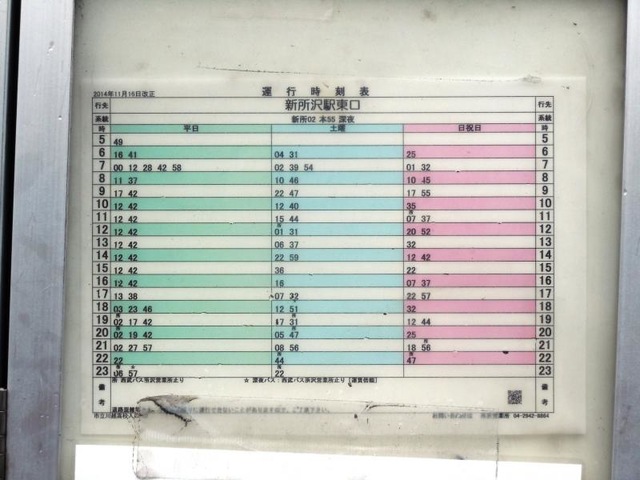 2014年11月16日改正
運行時刻表
行先 新所沢駅東口 行先
系統 新所02 本55 深夜 系統
時 平日 土曜 日祝日 時
5 49 5
6 16 41 04 31 25 6
7 00 12 28 42 58 02 39 54 01 32 7
8 11 37 10 46 10 45 8
9 17 42 22 47 17 55 9
10 12 42 12 40 35 10
11 12 42 15 44 07 37 11
12 12 42 01 31 20 52 12
13 12 42 06 37 32 13
14 12 42 22 59 12 42 14
15 12 42 36 22 15
16 12 42 16 07 37 16
17 13 38 07 32 22 57 17
18 03 23 46 12 51 32 18
19 02 17 42 17 31 12 44 19
20 02 19 42 05 47 25 20
21 02 27 57 08 56 18 56 21
22 22 44 47 22
23 06 57 22 23
備考 所 西武バス所沢営業所より ☆ 深夜バス：西武バス所沢営業所より [運賃倍額] 備考
道路混雑等
市立川越高校入口 営業所 04-2942-8884